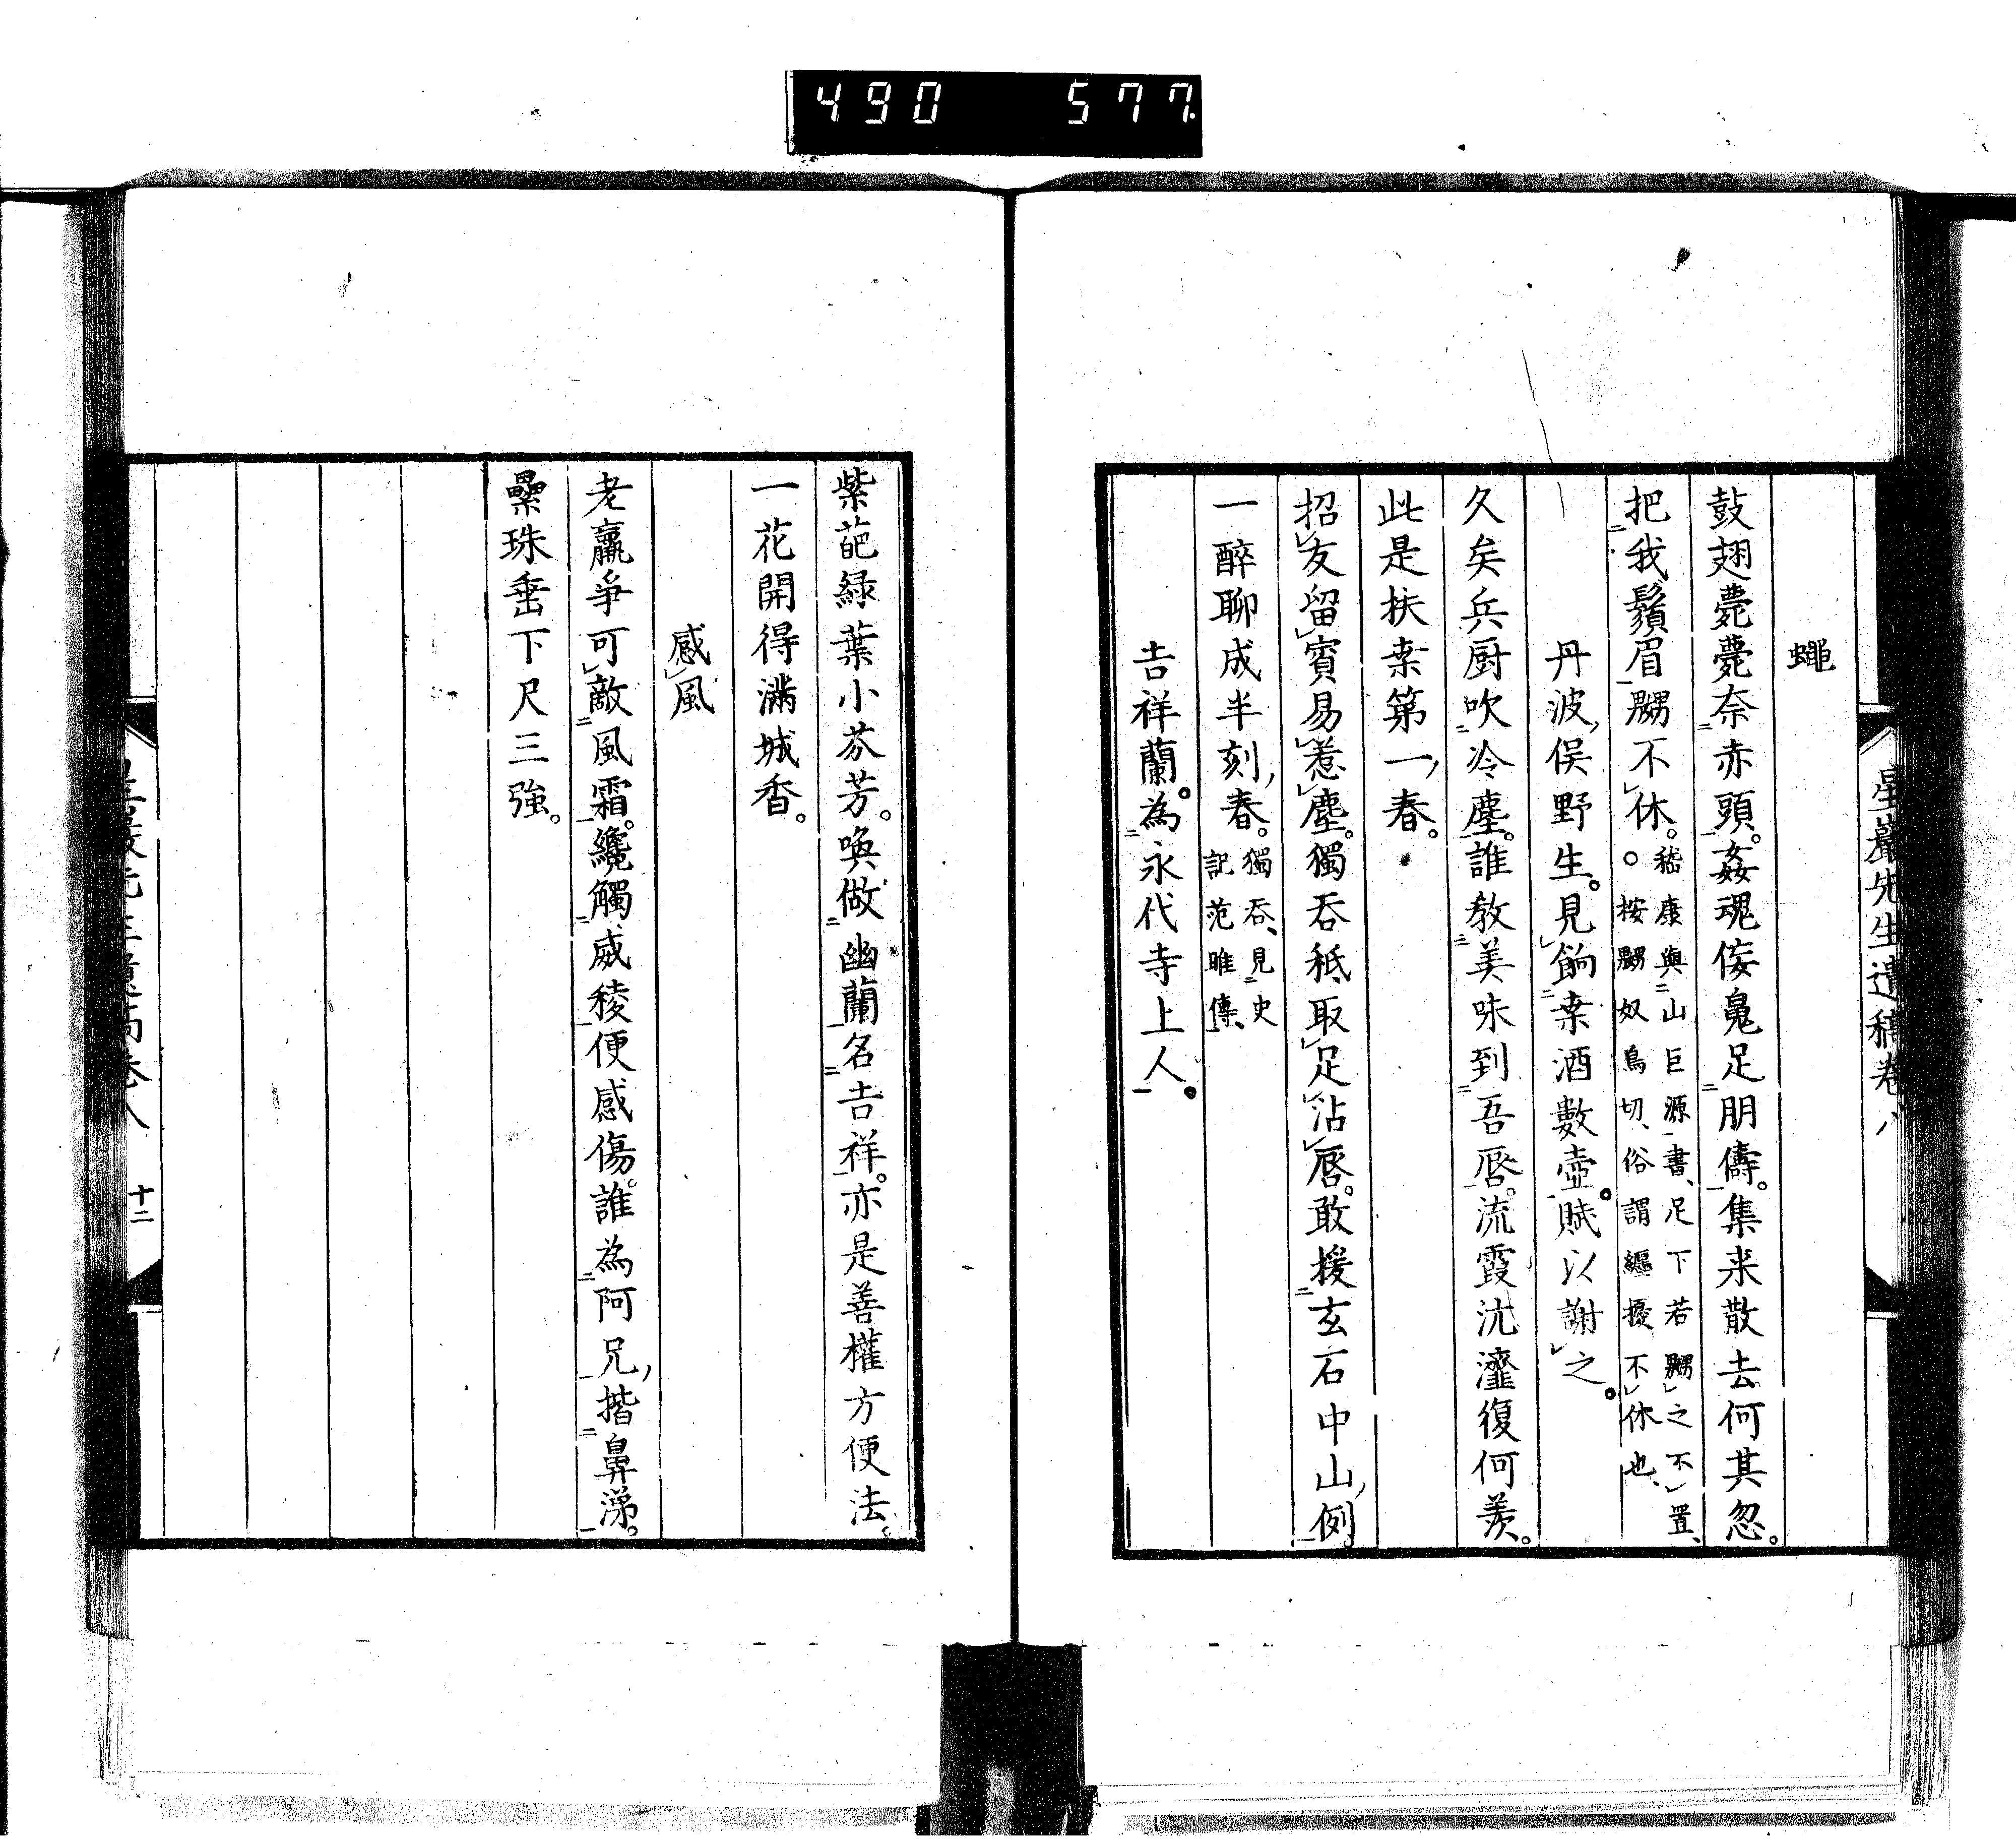 490 577
星巖先生遺稿卷八
蠅
鼓翅薨薨奈赤頭。姦魂侫鬼足朋儔。集来散去何其忽。
把我鬚眉嬲不休。嵇康與山巨源書、足下若嬲之不置、
。按嬲奴鳥切、俗謂纏擾不休也、
丹波俣野生。見餉桒酒數壺。賦以謝之。
久矣兵厨吹冷塵。誰教美味到吾唇。流霞沆瀣復何羨。
此是扶桒第一春。
招友留賓易惹塵。獨呑秪取足沾唇。敢援玄石中山例。
一醉聊成半刻春。獨呑、見史
記范雎傳、
吉祥蘭。為永代寺上人。
紫葩緑葉小芬芳。喚做幽蘭名吉祥。亦是善權方便法。
一花開得滿城香。
感風
老羸爭可敵風霜。纔觸威稜便感傷。誰為阿兄揩鼻涕。
纍珠垂下尺三強。
十二